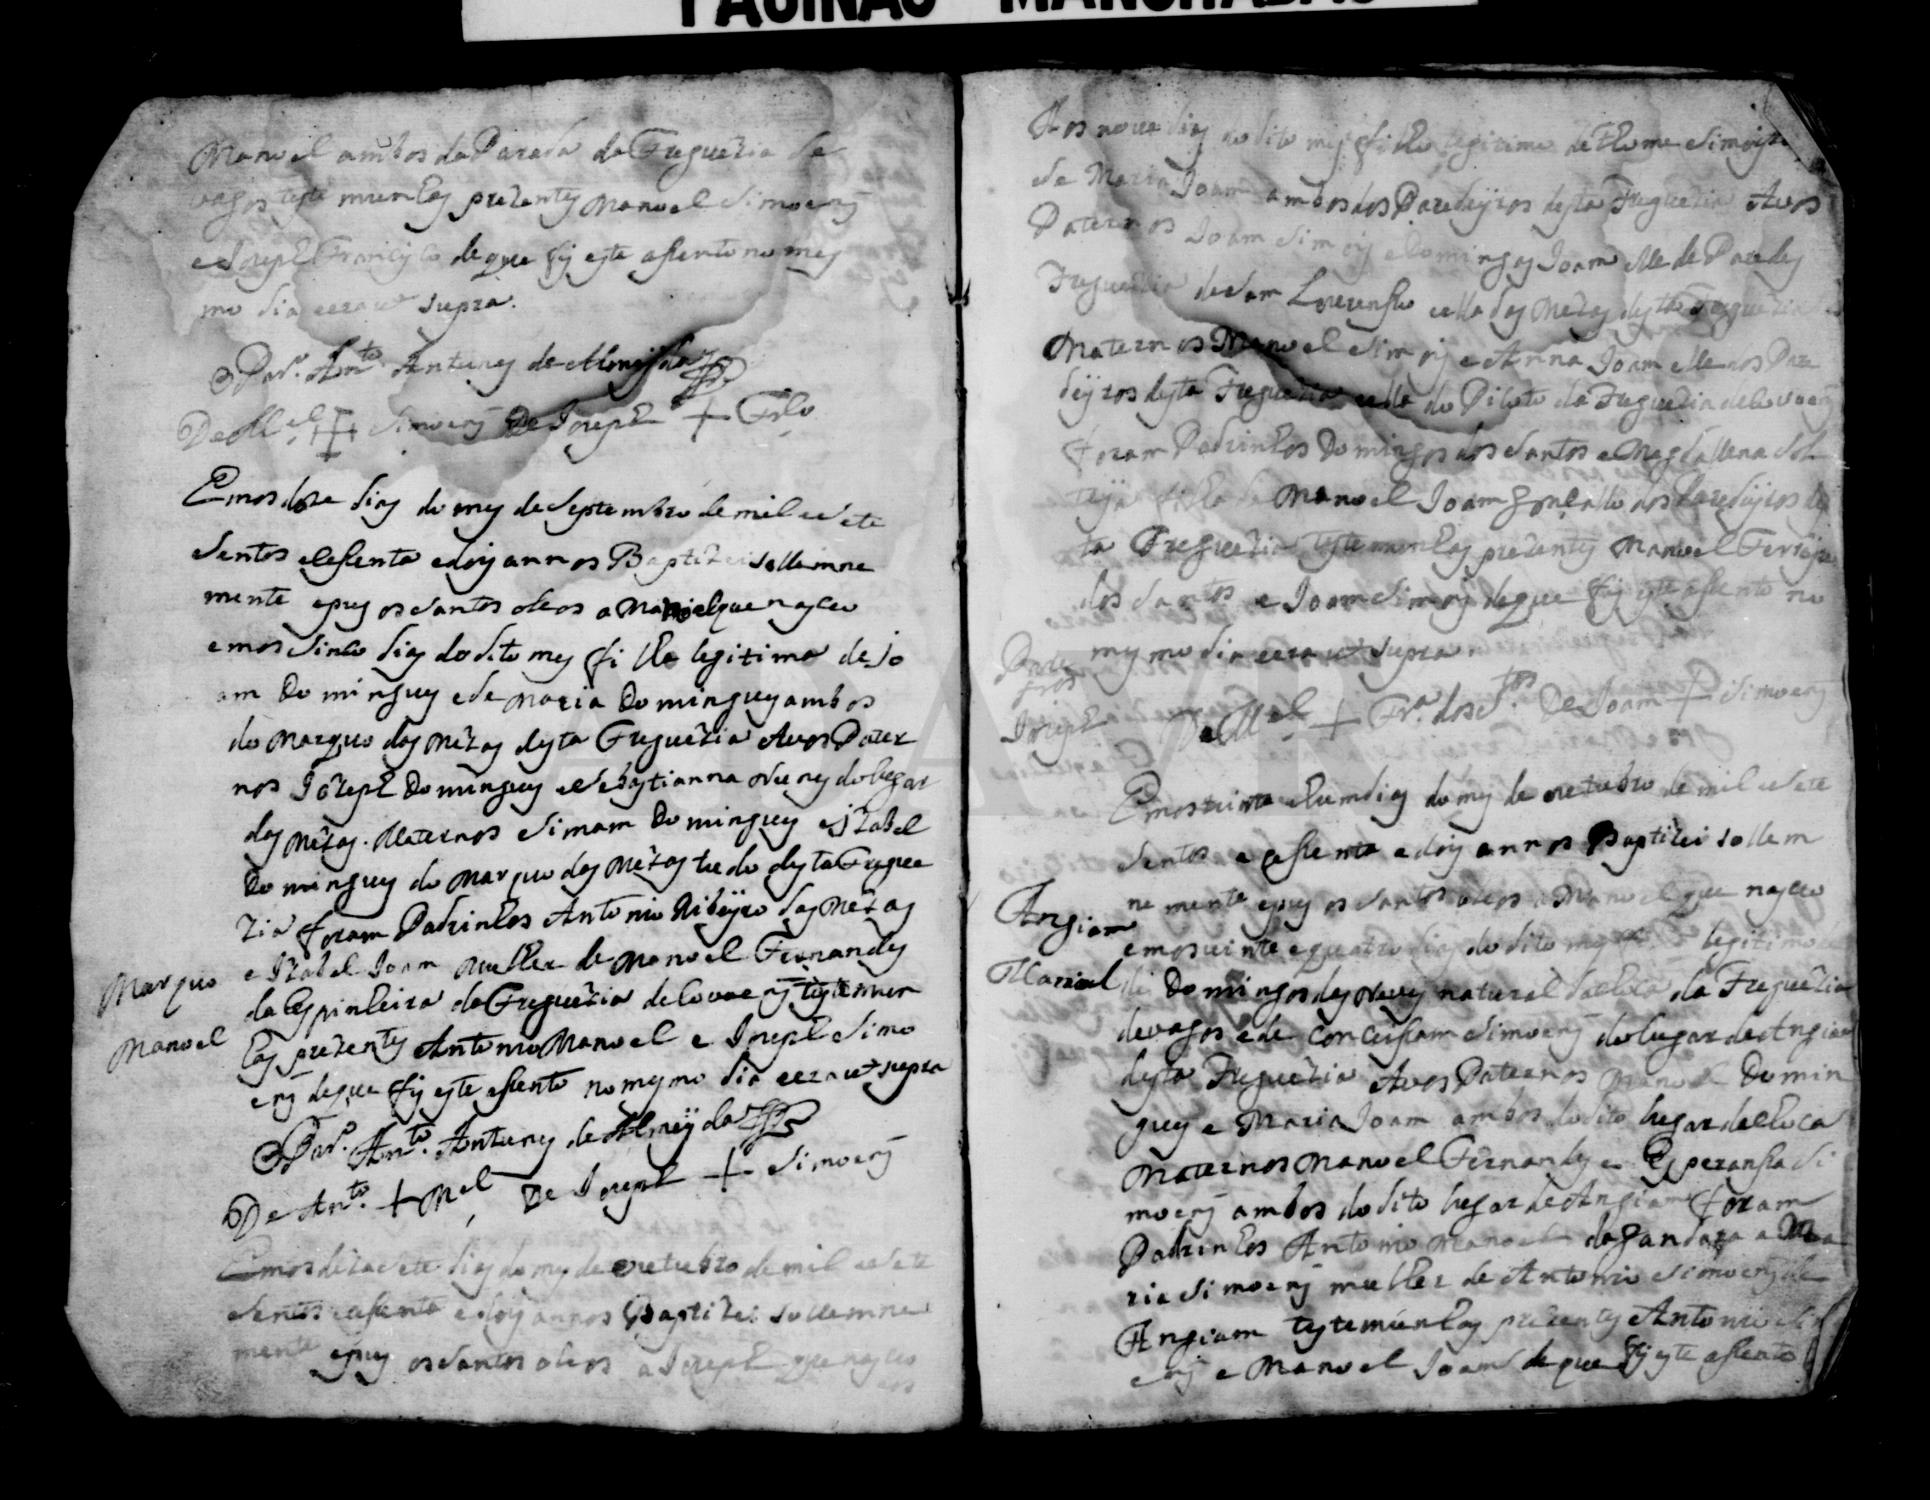 PAGINAS MANCHADAS
Manoel ambos da Parada da Freguezia de
vagos testemunhas prezentes Manoel Simoens
e Joseph Francisco de que fis este assento no mes
mo dia e era ut supra.
O Par.º Ant.º Antunes de Almeyda
De M.el + Simoens De Joseph + Fr.co
Em os doze dias do mes de Septembro de mil e sete
sentos e sesenta e dois annos Baptizei sollemne
mente e pus os santos oleos a Manoel que nasceo
em os sinco dias do dito mes filho legitimo de Jo
am Domingues e de Maria Domingues ambos
do Marquo das Mezas desta Freguezia Avos Pater
nos Jozeph Domingues e Sebastianna Nunes do lugar
das Mezas. Maternos Simam Domingues e Izabel
Domingues do Marquo das Mezas tudo desta Fregue
zia foram Padrinhos Antonio Ribeyro das Mezas
e Izabel Joam mulher de Manoel Fernandes
da Espinheira da Freguezia de Covoens testemun
has prezentes Antonio Manoel e Joseph Simo
ens de que fis este assento no mesmo dia e era ut supra
O Par.º Ant.º Antunes de Almeyda
De Ant.º + M.el De Joseph + Simoens
Em os dezasete dias do mes de outubro de mil e sete
sentos e sesenta e dois annos Baptizei sollemne
mente e pus os santos oleos a Joseph que nasceo
aos
Marquo
Manoel
Aos nove dias do dito mes filho legitimo de Thome Simois e
de Maria Joam ambos dos Paredeyros desta Freguezia Avos
Paternos Joam Simois e Domingas Joam elle de Paredes
Freguezia de Sam Lourensso ella das Mezas desta Freguezia
Maternos Manoel Simois e Anna Joam elle dos Pare
deyros desta Freguezia ella do Piloto da Freguezia de Covoens
foram Padrinhos Domingos dos Santos e Magdallena sol
teyra filha de Manoel Joam Gonçallo dos Paredeyros des
ta Freguezia testemunhas prezentes Manoel Ferreyra
dos Santos e Joam Simois de que fis este assento no
mesmo dia e era ut supra.
Parede
yros
Joseph
De M.el + Fr.ª dos S.tos De Joam + Simoens
Em os trinta e hum dias do mes de outubro de mil e sete
sentos e sesenta e dois annos Baptizei sollem
ne mente e pus os santos oleos a Manoel que nasceo
em os vinte e quatro dias do dito mes legitimo
de Domingos des Neves natural da da Freguezia
de vagos e de Conceissam Simoens do lugar de Angiam
desta Freguezia Avos Paternos Manoel Domin
gues e Maria Joam ambos do dito lugar de
Maternos Manoel Fernandes e Esperanssa Si
moens ambos do dito lugar de Angiam foram
Padrinhos Antonio Manoel da Gandara e Ma
ria Simoens mulher de Antonio Simoens de
Angiam testemunhas prezentes Antonio Sim
ens e Manoel Joam de que fis este assento
Angiam
Manoel